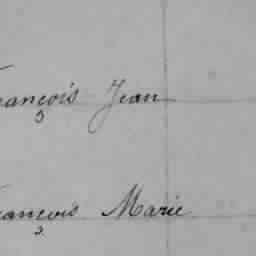 François Jean
François Marie